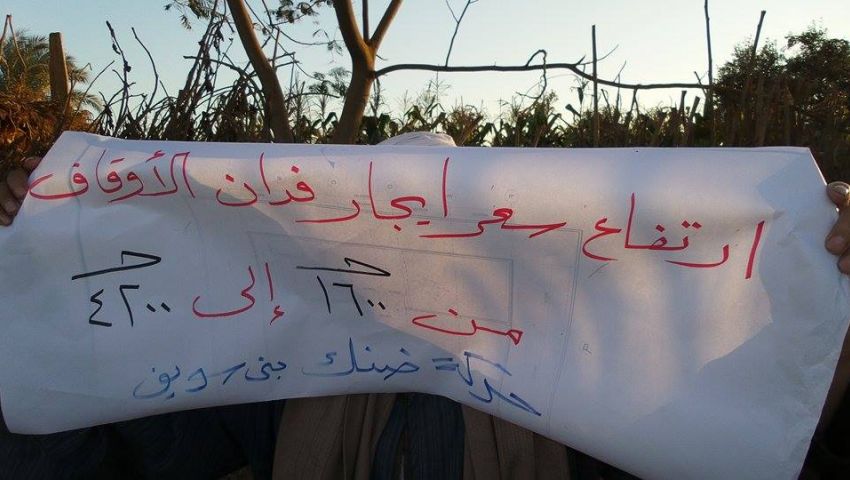 ارتفاع سعر ايجار فدان الأوقاف
من ١٦٠٠ إلى ٤٢٠٠
حركة ضنك بنى سويف